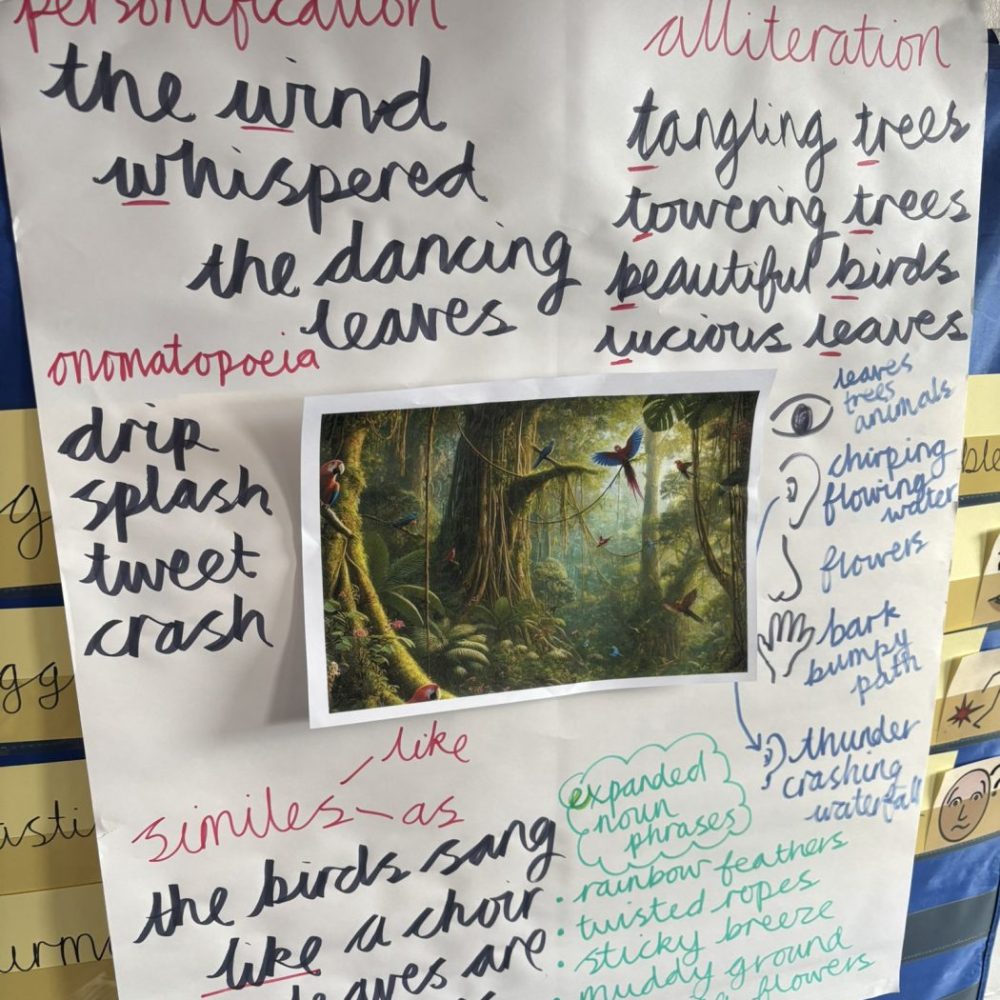 personification
the wind
whispered
the dancing
leaves
alliteration
tangling trees
towering trees
beautiful birds
lucious leaves
onomatopoeia
drip
splash
tweet
crash
leaves
trees
animals
chirping
flowing
water
flowers
bark
bumpy
path
thunder
crashing
waterfall
like
similes
as
the birds sang
like a choir
leaves are
expanded
noun
phrases
• rainbow feathers
• twisted ropes
• sticky breeze
muddy ground
flowers